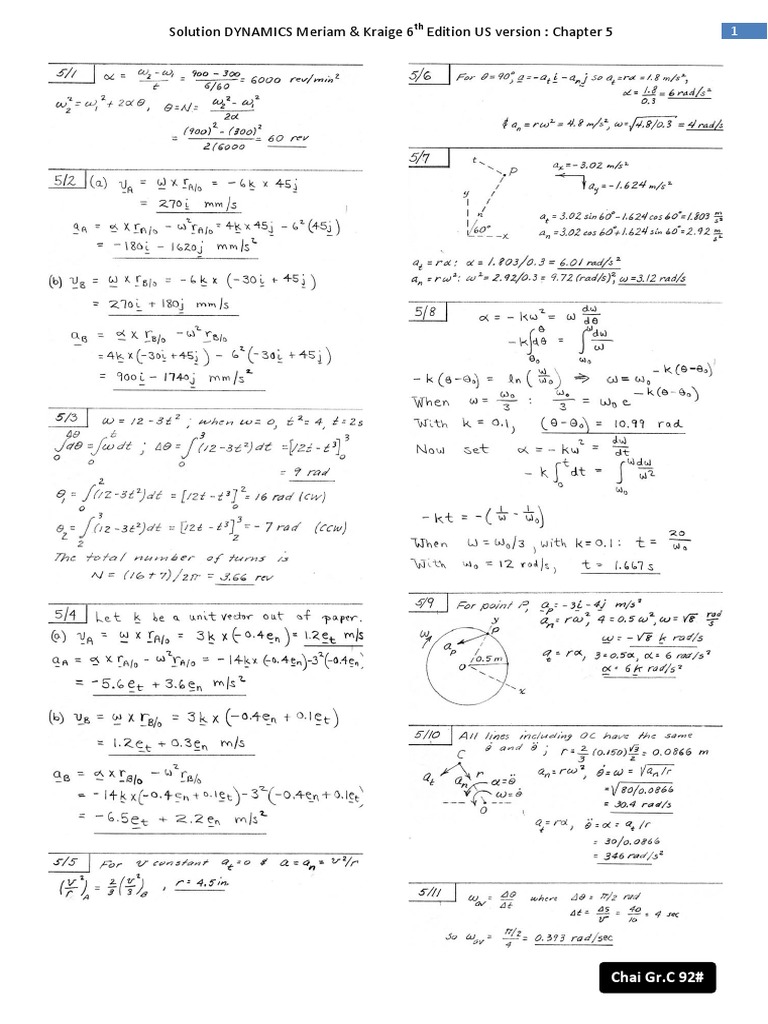 Solution DYNAMICS Meriam & Kraige 6th Edition US version : Chapter 5
1
5/1 α = (ω₂ - ω₁)/t = (900 - 300)/(6/60) = 6000 rev/min²
ω₂² = ω₁² + 2αθ, θ = N = (ω₂² - ω₁²)/2α
= ((900)² - (300)²)/2(6000 = 60 rev
5/2 (a) v_A = ω × r_A/O = -6k × 45j
= 270i mm/s
a_A = α × r_A/O - ω² r_A/O = 4k × 45j - 6²(45j)
= -180i - 1620j mm/s²
(b) v_B = ω × r_B/O = -6k × (-30i + 45j)
= 270i + 180j mm/s
a_B = α × r_B/O - ω² r_B/O
= 4k × (-30i + 45j) - 6²(-30i + 45j)
= 900i - 1740j mm/s²
5/3 ω = 12 - 3t²; when ω = 0, t² = 4, t = 2s
∫₀^Δθ dθ = ∫₀^t ωdt ; Δθ = ∫₀³ (12 - 3t²)dt = [12t - t³]₀³
= 9 rad
θ₁ = ∫₀² (12 - 3t²)dt = [12t - t³]₀² = 16 rad (CW)
θ₂ = ∫₂³ (12 - 3t²)dt = [12t - t³]₂³ = -7 rad (CCW)
The total number of turns is
N = (16 + 7)/2π = 3.66 rev
5/4 Let k be a unit vector out of paper.
(a) v_A = ω × r_A/O = 3k × (-0.4e_n) = 1.2e_t m/s
a_A = α × r_A/O - ω² r_A/O = -14k × (-0.4e_n) - 3²(-0.4e_n)
= -5.6e_t + 3.6e_n m/s²
(b) v_B = ω × r_B/O = 3k × (-0.4e_n + 0.1e_t)
= 1.2e_t + 0.3e_n m/s
a_B = α × r_B/O - ω² r_B/O
= -14k × (-0.4e_n + 0.1e_t) - 3²(-0.4e_n + 0.1e_t)
= -6.5e_t + 2.2e_n m/s²
5/5 For v constant a_t = 0 & a = a_n = v²/r
(v²/r)_A = 2/3 (v²/3)_B , r = 4.5 in.
5/6 For θ = 90°, a = -a_t i - a_n j so a_t = rα = 1.8 m/s²,
α = 1.8/0.3 = 6 rad/s²
& a_n = rω² = 4.8 m/s², ω = √4.8/0.3 = 4 rad/s
5/7
t
P
y
n
60°
x
a_x = -3.02 m/s²
a_y = -1.624 m/s²
a_t = 3.02 sin 60° - 1.624 cos 60° = 1.803 m/s²
a_n = 3.02 cos 60° + 1.624 sin 60° = 2.92 m/s²
a_t = rα : α = 1.803/0.3 = 6.01 rad/s²
a_n = rω² : ω² = 2.92/0.3 = 9.72 (rad/s)², ω = 3.12 rad/s
5/8 α = -kω² = ω dω/dθ
-k∫_θ₀^θ dθ = ∫_ω₀^ω dω/ω
-k(θ - θ₀) = ln(ω/ω₀) ⇒ ω = ω₀e^(-k(θ - θ₀))
When ω = ω₀/3 : ω₀/3 = ω₀e^(-k(θ - θ₀))
With k = 0.1, (θ - θ₀) = 10.99 rad
Now set α = -kω² = dω/dt
-k∫₀^t dt = ∫_ω₀^ω dω/ω²
-kt = -(1/ω - 1/ω₀)
When ω = ω₀/3, with k = 0.1 : t = 20/ω₀
With ω₀ = 12 rad/s, t = 1.667 s
5/9 For point P, a_P = -3i - 4j m/s²
a_n = rω², 4 = 0.5ω², ω = √8 rad/s
ω = -√8 k rad/s
a_t = rα, 3 = 0.5α, α = 6 rad/s²
α = 6k rad/s²
ω
y
P
a_P
O
0.5 m
x
5/10 All lines including OC have the same
θ̇ and θ̈ ; r = 2/3 (0.150) √3/2 = 0.0866 m
C
a_t
a_n
r
α = θ̈
ω = θ̇
O
a_n = rω², θ̇ = ω = √a_n/r
= √80/0.0866
= 30.4 rad/s
a_t = rα, θ̈ = α = a_t/r
= 30/0.0866
= 346 rad/s²
5/11 ω_av = Δθ/Δt where Δθ = π/2 rad
Δt = Δs/v = 40/10 = 4 sec
So ω_av = (π/2)/4 = 0.393 rad/sec
Chai Gr.C 92#